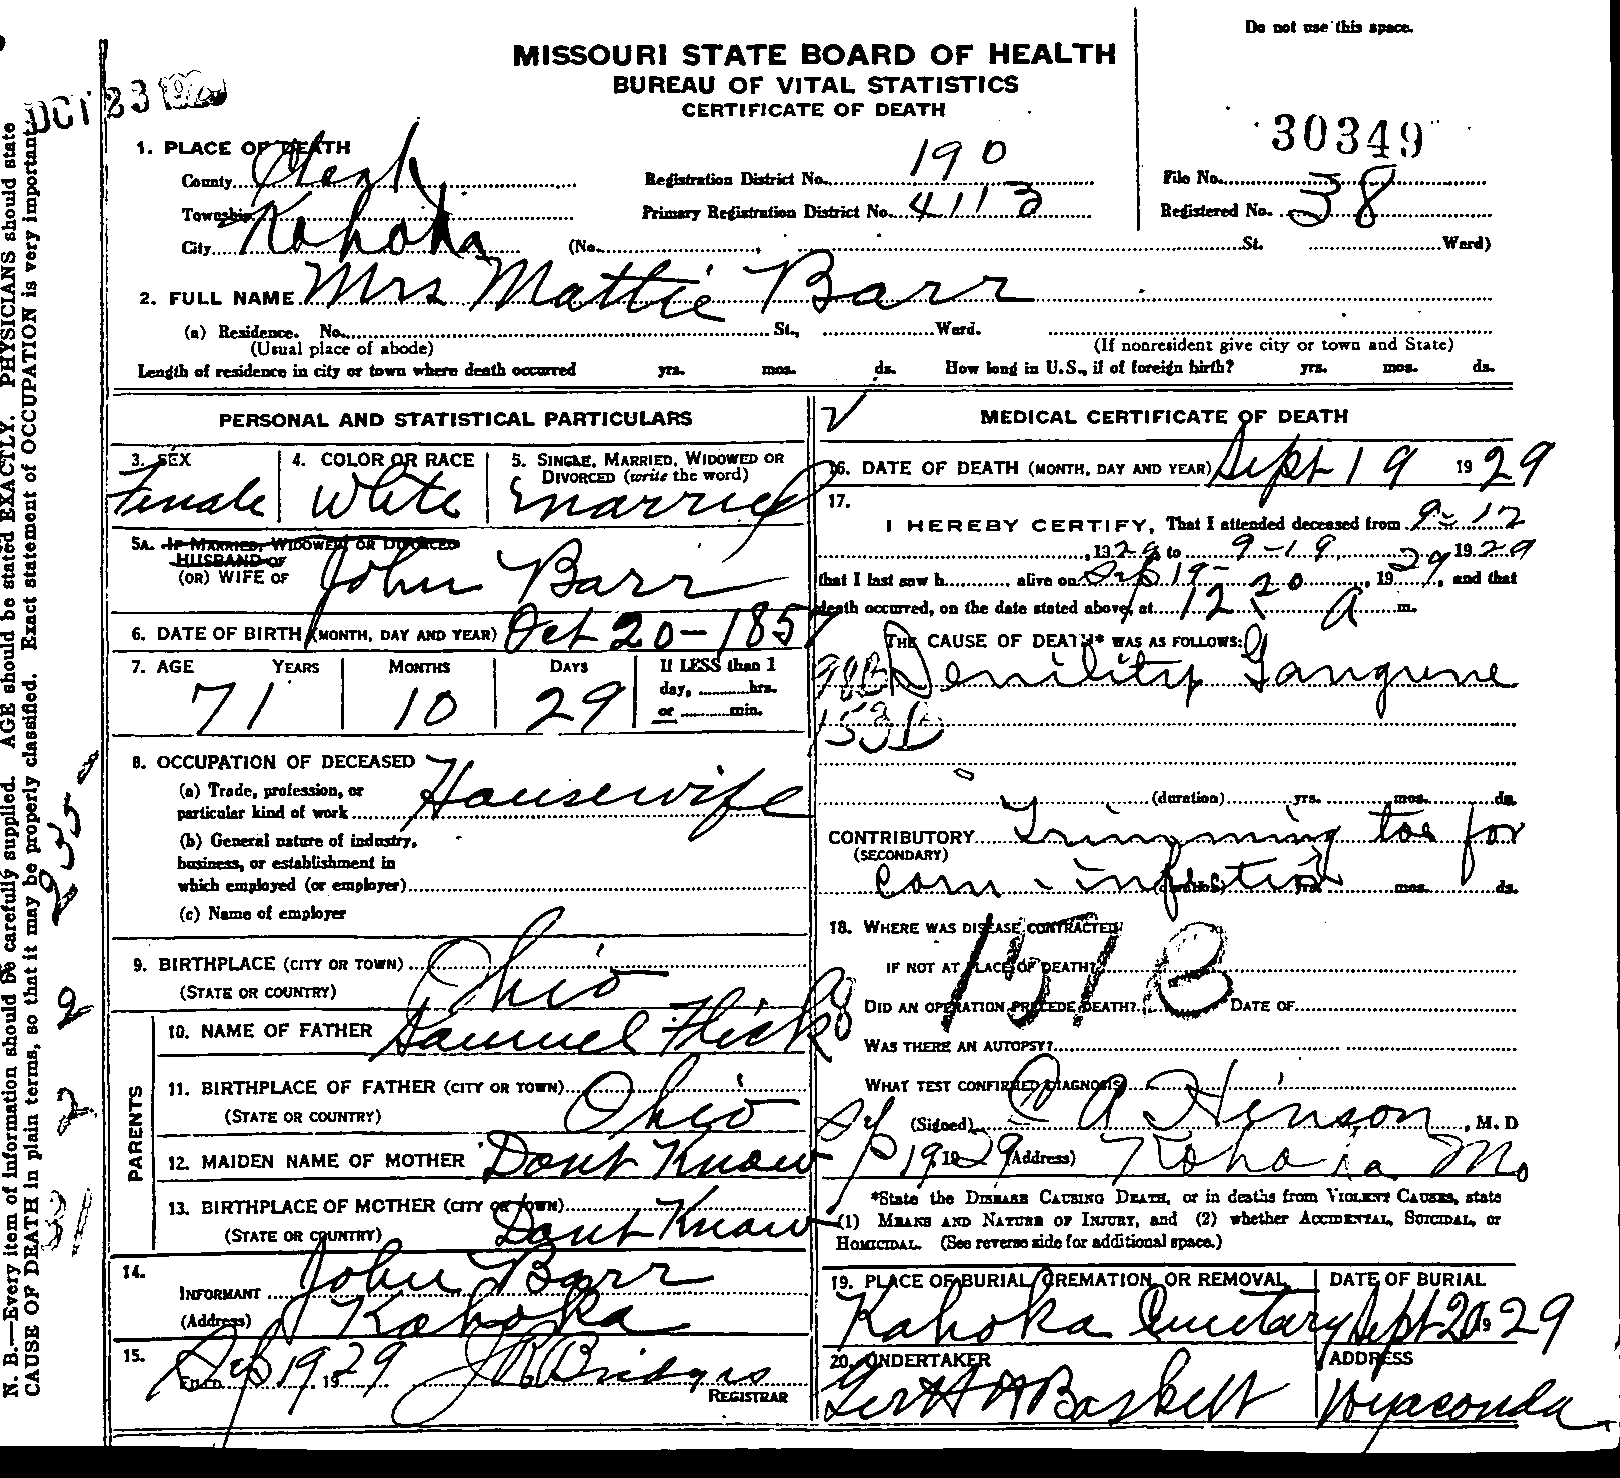 Do not use this space.
MISSOURI STATE BOARD OF HEALTH
BUREAU OF VITAL STATISTICS
CERTIFICATE OF DEATH
OCT 23
30349
1. PLACE OF DEATH
County Clark Registration District No. 190 File No.
Township Primary Registration District No. 4113 Registered No. 38
City Kahoka (No. , St. Ward)
2. FULL NAME Mrs Mattie Barr
(a) Residence. No. St., Ward.
(Usual place of abode) (If nonresident give city or town and State)
Length of residence in city or town where death occurred yrs. mos. ds. How long in U.S., if of foreign birth? yrs. mos. ds.
PERSONAL AND STATISTICAL PARTICULARS
3. SEX Female
4. COLOR OR RACE White
5. SINGLE, MARRIED, WIDOWED OR DIVORCED (write the word) Married
5A. IF MARRIED, WIDOWED, OR DIVORCED
HUSBAND OF
(OR) WIFE OF John Barr
6. DATE OF BIRTH (MONTH, DAY AND YEAR) Oct 20-1857
7. AGE YEARS MONTHS DAYS If LESS than 1
day, hrs.
or min.
71 10 29
8. OCCUPATION OF DECEASED
(a) Trade, profession, or
particular kind of work Housewife
(b) General nature of industry,
business, or establishment in
which employed (or employer)
(c) Name of employer
9. BIRTHPLACE (CITY OR TOWN)
(STATE OR COUNTRY) Ohio
PARENTS
10. NAME OF FATHER Samuel Flick
11. BIRTHPLACE OF FATHER (CITY OR TOWN)
(STATE OR COUNTRY) Ohio
12. MAIDEN NAME OF MOTHER Dont Know
13. BIRTHPLACE OF MOTHER (CITY OR TOWN)
(STATE OR COUNTRY) Dont Know
14.
INFORMANT John Barr
(Address) Kahoka
15.
FILED Sep 19, 1929 J R Bridges
REGISTRAR
MEDICAL CERTIFICATE OF DEATH
16. DATE OF DEATH (MONTH, DAY AND YEAR) Sept 19 1929
17.
I HEREBY CERTIFY, That I attended deceased from 9-12
, 1929 to 9-19, 1929
that I last saw h alive on Sep 19-, 1929, and that
death occurred, on the date stated above, at 12 20 a m.
THE CAUSE OF DEATH* WAS AS FOLLOWS:
98B Senility Gangrene
153B
(duration) yrs. mos. ds.
CONTRIBUTORY Trimming toe for
(SECONDARY)
corn - infection yrs. mos. ds.
18. WHERE WAS DISEASE CONTRACTED
IF NOT AT PLACE OF DEATH?
151B
DID AN OPERATION PRECEDE DEATH? DATE OF
WAS THERE AN AUTOPSY?
WHAT TEST CONFIRMED DIAGNOSIS?
(Signed) C A Henson, M. D
Sep 19, 1929 (Address) Kahoka Mo
*State the DISEASE CAUSING DEATH, or in deaths from VIOLENT CAUSES, state
(1) MEANS AND NATURE OF INJURY, and (2) whether ACCIDENTAL, SUICIDAL, or
HOMICIDAL. (See reverse side for additional space.)
19. PLACE OF BURIAL, CREMATION, OR REMOVAL DATE OF BURIAL
Kahoka Cemetary Sept 20 1929
20. UNDERTAKER ADDRESS
Baskett Wyaconda
N. B.—Every item of information should be carefully supplied. AGE should be stated EXACTLY. PHYSICIANS should state
CAUSE OF DEATH in plain terms, so that it may be properly classified. Exact statement of OCCUPATION is very important.